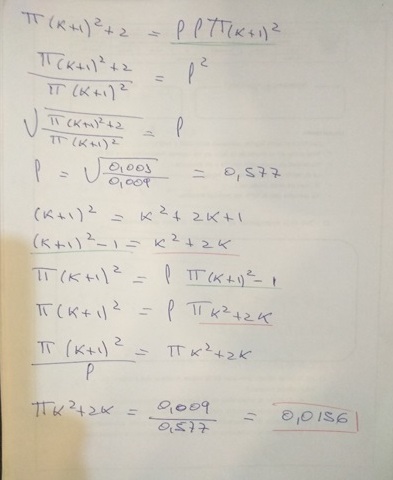 π(k+1)²+2 = ρ ρ π(k+1)²
π(k+1)²+2 / π(k+1)² = ρ²
√(π(k+1)²+2 / π(k+1)²) = ρ
ρ = √(0,003 / 0,009) = 0,577
(k+1)² = k²+2k+1
(k+1)²-1 = k²+2k
π(k+1)² = ρ π(k+1)²-1
π(k+1)² = ρ πk²+2k
π(k+1)² / ρ = πk²+2k
πk²+2k = 0,009 / 0,577 = 0,0156